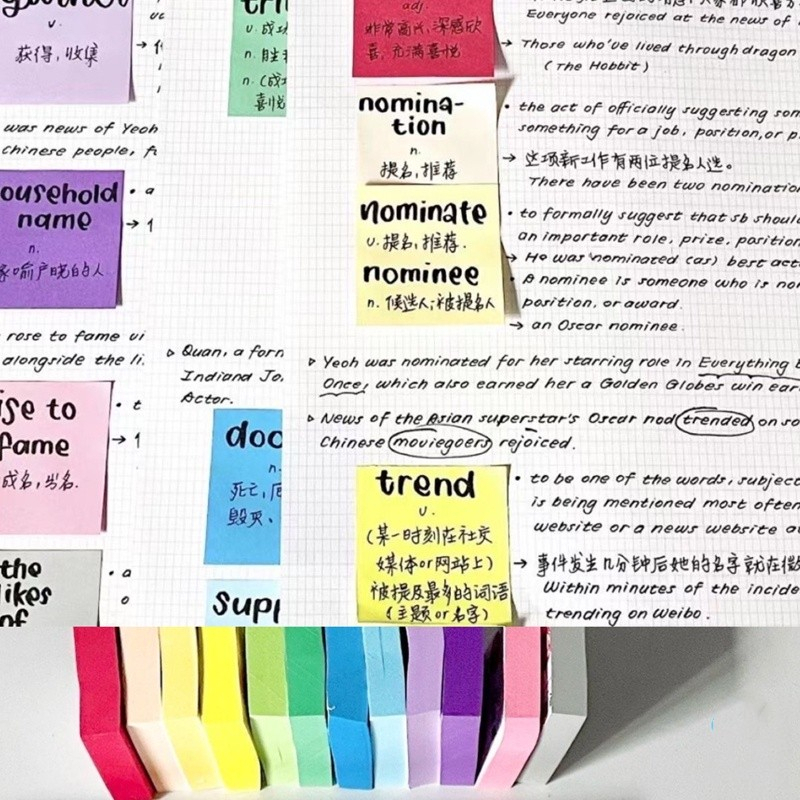 v.
获得,收集
was news of Yeoh
Chinese people, f
ousehold
name
n.
家喻户晓的人
rose to fame vi
alongside the li
ise to
fame
成名,出名.
the
likes
of
v. 成功
n. 胜利
n. (成功
喜悦
Quan, a form
Indiana Jo
Actor.
doo
n.
死亡,厄
毁灭、
supp
adj.
非常高兴,深感欣
喜,充满喜悦
Everyone rejoiced at the news of
→ Those who've lived through dragon
(The Hobbit)
nomina-
tion
n.
提名,推荐
• the act of officially suggesting som
something for a job, position, or p
→ 这项新工作有两位提名人选。
There have been two nomination
nominate
v. 提名,推荐.
• to formally suggest that sb shoul
an important role, prize, position
→ He was nominated (as) best act
nominee
n. 候选人;被提名人
• A nominee is someone who is nom
position, or award.
→ an Oscar nominee.
▷ Yeoh was nominated for her starring role in Everything E
Once, which also earned her a Golden Globes win ear
▷ News of the Asian superstar's Oscar nod trended on so
Chinese moviegoers rejoiced.
trend
v.
(某一时刻在社交
媒体or网站上)
被提及最多的词语
(主题or名字)
• to be one of the words, subject
is being mentioned most often
website or a news website a
→ 事件发生几分钟后她的名字就在微
Within minutes of the incide
trending on Weibo.